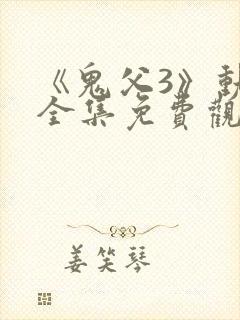 《鬼父3》動
全集免費觀
姜笑琴